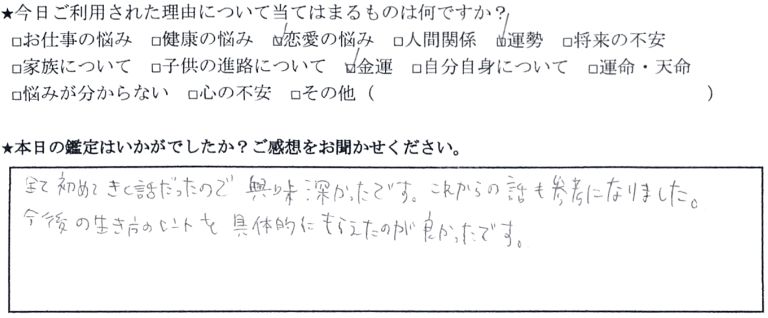 ★今日ご利用された理由について当てはまるものは何ですか？
□お仕事の悩み □健康の悩み ☑恋愛の悩み □人間関係 ☑運勢 □将来の不安
□家族について □子供の進路について ☑金運 □自分自身について □運命・天命
□悩みが分からない □心の不安 □その他（ ）
★本日の鑑定はいかがでしたか？ご感想をお聞かせください。
全て初めてきく話だったので興味深かったです。これからの話も参考になりました。
今後の生き方のヒントを具体的にもらえたのが良かったです。